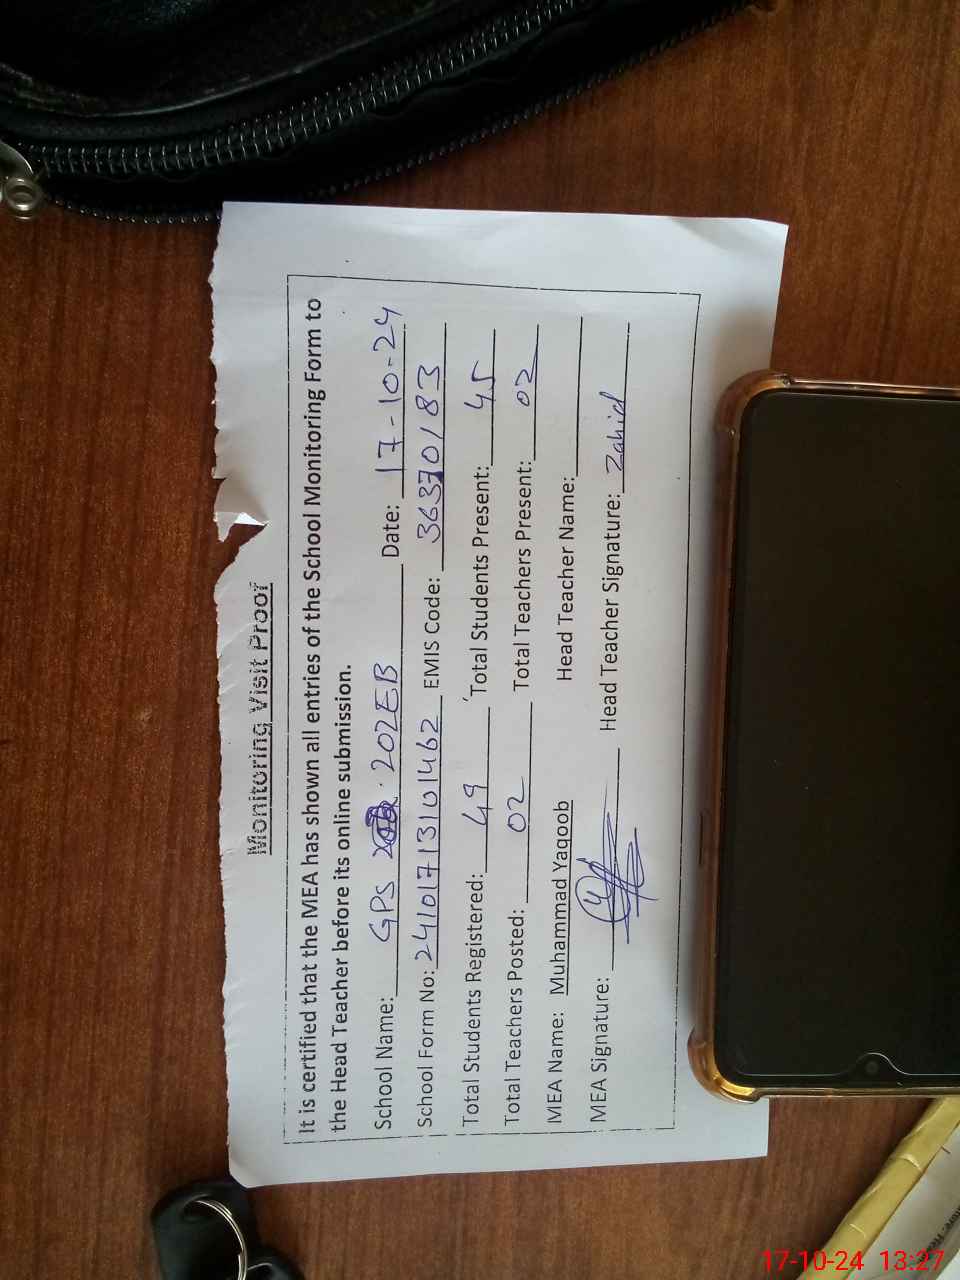 Monitoring Visit Proof
It is certified that the MEA has shown all entries of the School Monitoring Form to
the Head Teacher before its online submission.
School Name: GPS 202EB Date: 17-10-24
School Form No: 24101713101462 EMIS Code: 36370183
Total Students Registered: 49 Total Students Present: 45
Total Teachers Posted: 02 Total Teachers Present: 02
MEA Name: Muhammad Yaqoob Head Teacher Name:
MEA Signature: Head Teacher Signature: Zahid
17-10-24 13:27